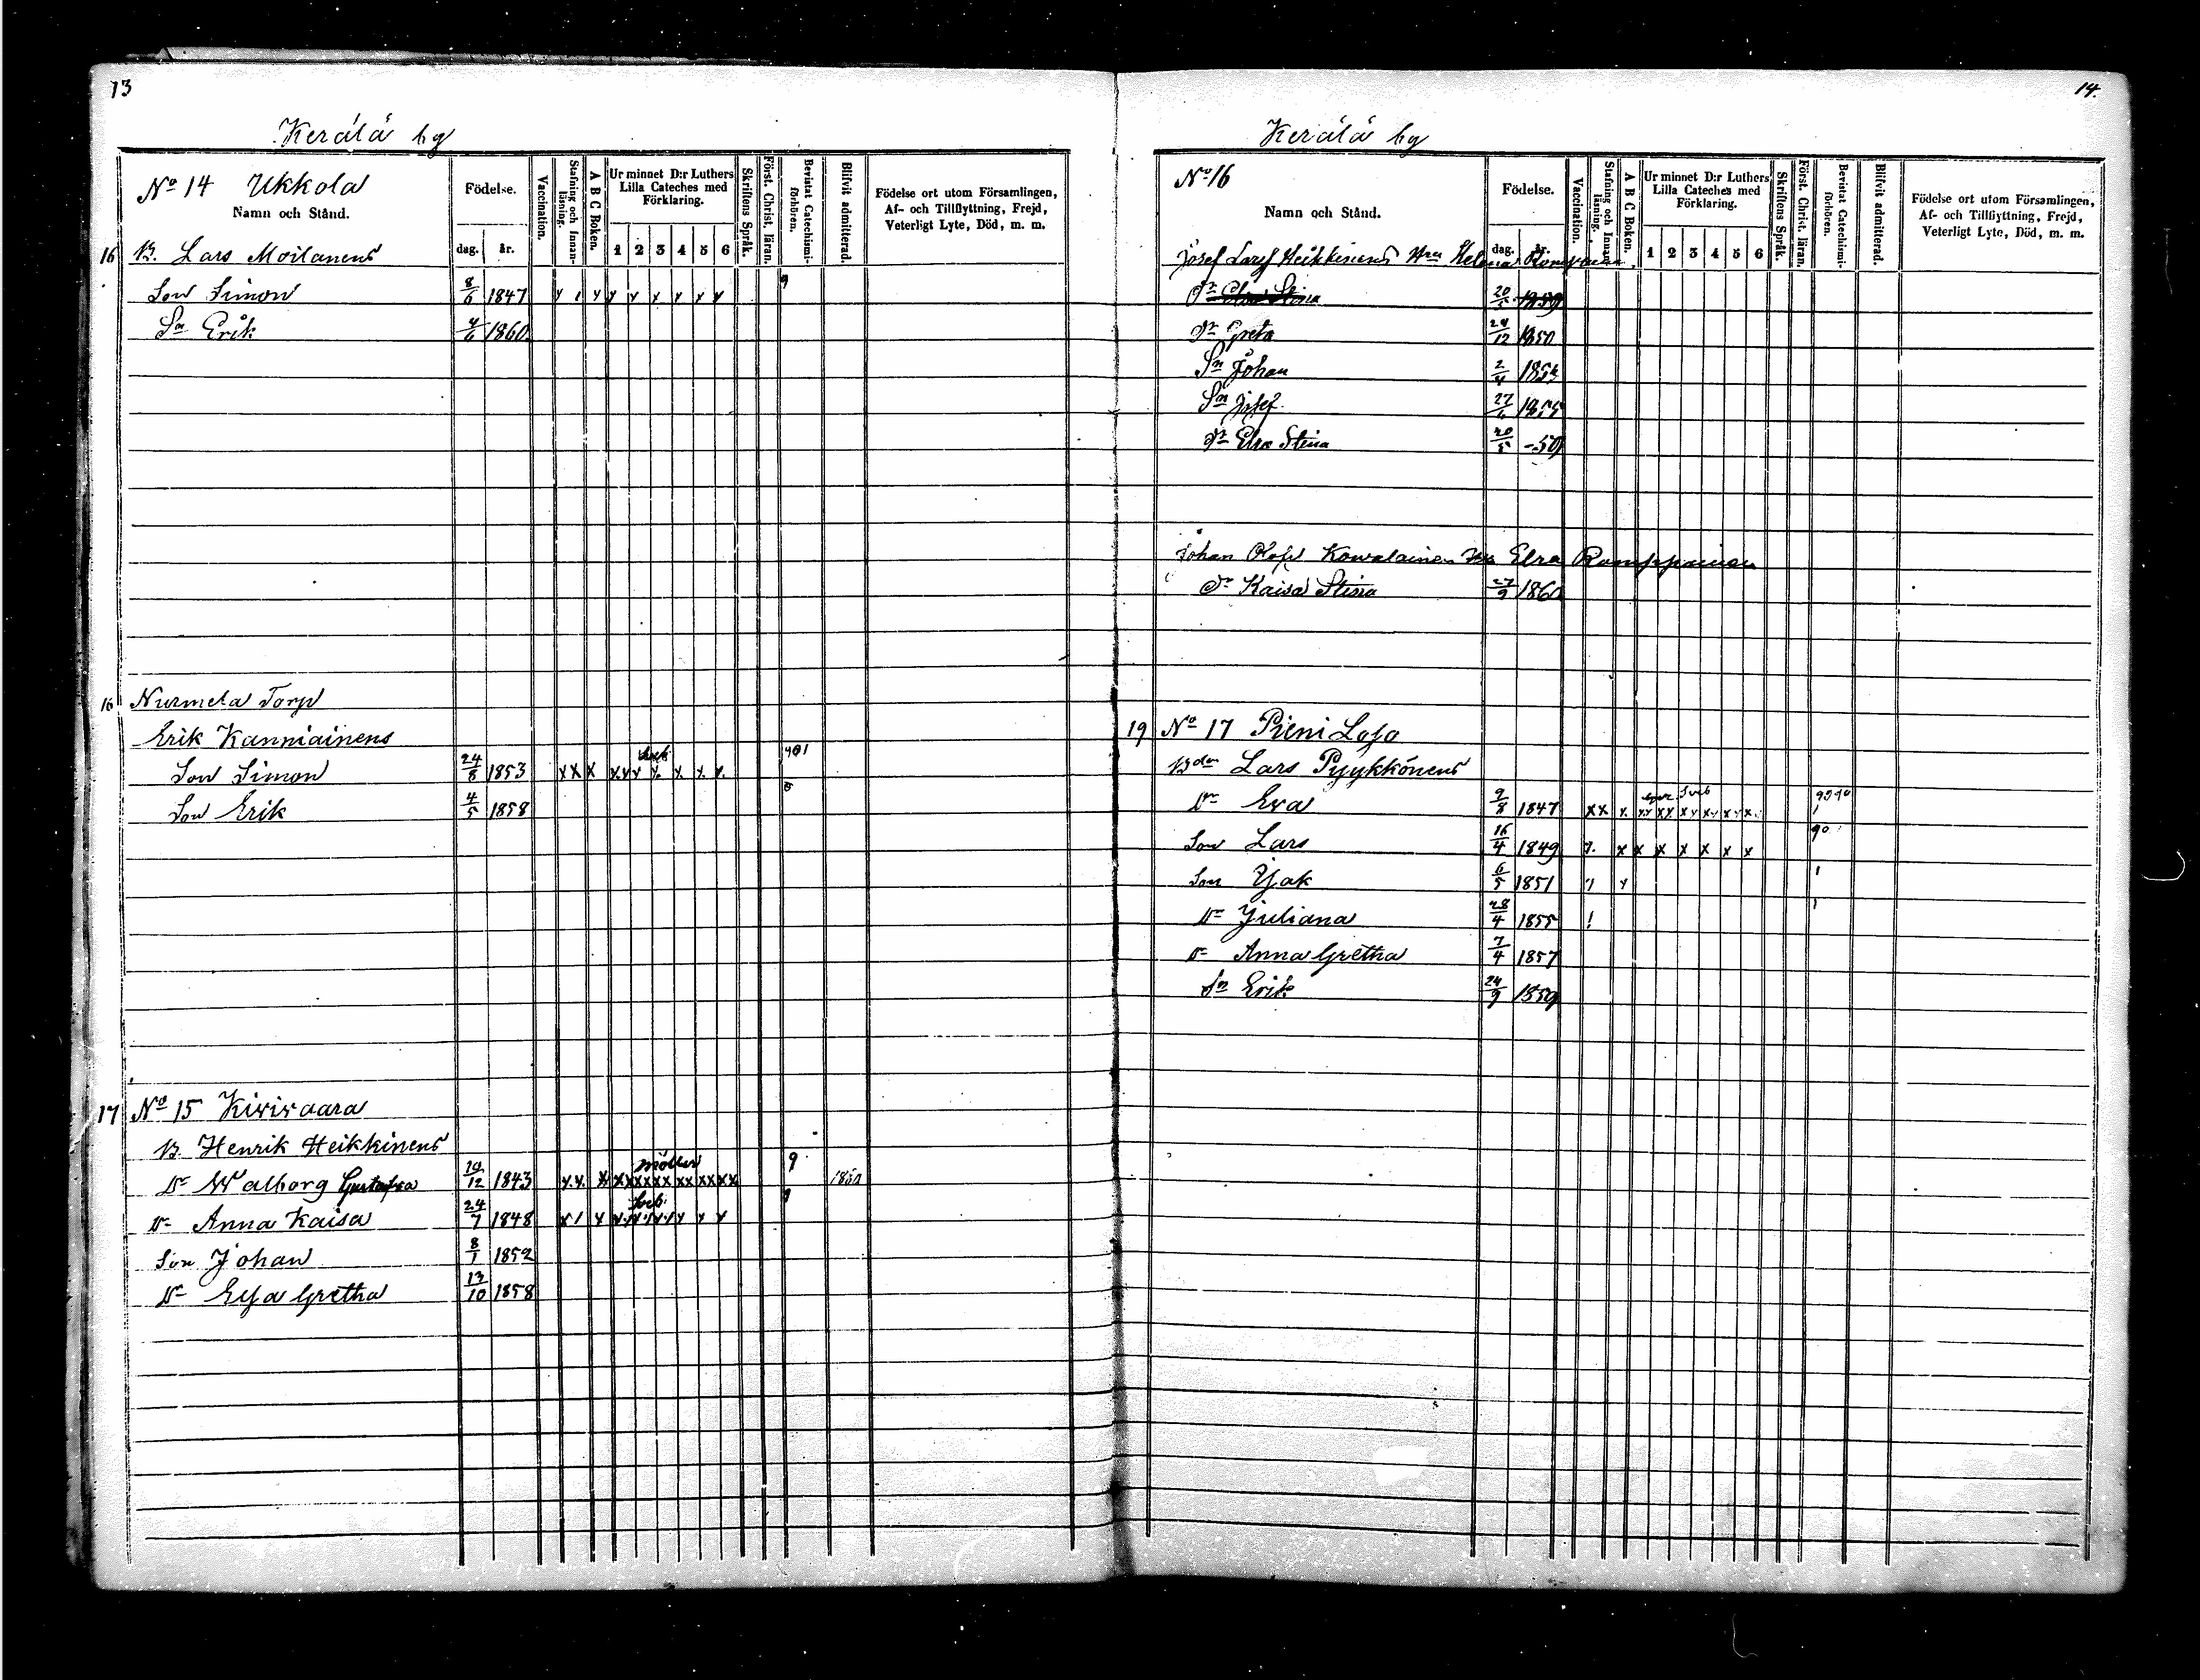 13
Kerälä by
No 14 Ukkola
Namn och Stånd.
Födelse.
dag. år.
Vaccination.
Stafning och Innanläsning.
A B C Boken.
Ur minnet D:r Luthers Lilla Cateches med Förklaring.
1 2 3 4 5 6
Skriftens Språk.
Först. Christ. läran.
Bevistat Catechismiförhören.
Blifvit admitterad.
Födelse ort utom Församlingen, Af- och Tillflyttning, Frejd, Veterligt Lyte, Död, m. m.
16 B. Lars Moilanens
Son Simon 8/6 1847
Sn Erik 4/6 1860
16 Nurmela Torp
Erik Kanniainens
Son Simon 24/8 1853
Son Erik 4/5 1858
17 No 15 Kivivaara
B Henrik Heikkinens
Dr Walborg Gustafva 12 1843 Möller 9
Dr Anna Kaisa 24/7 1848
Son Johan 8/1 1852
Dr Eva Gretha 13/10 1858
14.
Kerälä by
No 16
Namn och Stånd.
Födelse.
dag. år.
Vaccination.
Stafning och Innanläsning.
A B C Boken.
Ur minnet D:r Luthers Lilla Cateches med Förklaring.
1 2 3 4 5 6
Skriftens Språk.
Först. Christ. läran.
Bevistat Catechismiförhören.
Blifvit admitterad.
Födelse ort utom Församlingen, Af- och Tillflyttning, Frejd, Veterligt Lyte, Död, m. m.
Josef Heikkinens Helena
Dr Elsa Stina 20/5 1859
Dr Greta 12 1850
Sn Johan 2/4
Sn Josef 27/6 1855
Dr Elsa Stina 20/5 -59
Johan Kowalainen Elsa Romppainen
Dr Kaisa Stina 27/9 1860
19 No 17 Pieni Laso
Bdn Lars Pyykkönens
Dr Eva 9/8 1847
Son Lars 16/4 1849
Son Isak 6/5 1851
Dr Juliana 28/4 1855
Dr Anna Gretha 7/4 1857
Sn Erik 24/9 1859